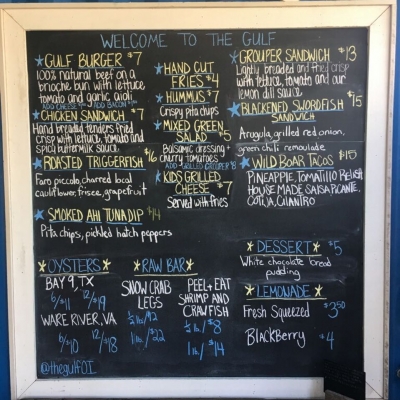 WELCOME TO THE GULF
GULF BURGER $7
100% natural beef on a
brioche bun with lettuce
tomato and garlic aioli
ADD CHEESE $1 ADD BACON $1
CHICKEN SANDWICH $7
Hand breaded tenders fried
crisp with lettuce, tomato and
spicy buttermilk sauce
ROASTED TRIGGERFISH $16
Faro piccolo, charred local
cauliflower, frisee, grapefruit
SMOKED AHI TUNA DIP $14
Pita chips, pickled hatch peppers
HAND CUT
FRIES $4
HUMMUS $7
Crispy pita chips
MIXED GREEN
SALAD $5
Balsamic dressing
cherry tomatoes
ADD GRILLED GROUPER $8
KIDS GRILLED
CHEESE $7
Served with fries
GROUPER SANDWICH $13
Lightly breaded and fried crisp
with lettuce, tomato and our
lemon dill sauce
BLACKENED SWORDFISH $15
SANDWICH
Arugula, grilled red onion,
green chili remoulade
WILD BOAR TACOS $15
PINEAPPLE, TOMATILLO RELISH,
HOUSE MADE SALSA PICANTE,
COTIJA, CILANTRO
OYSTERS
BAY 9, TX
6/$11 12/$19
WARE RIVER, VA
6/$10 12/$18
RAW BAR
SNOW CRAB
LEGS
1/2 lb/$12
1 lb/$22
PEEL + EAT
SHRIMP AND
CRAWFISH
1/2 lb/$8
1 lb/$14
DESSERT $5
White chocolate bread
pudding
LEMONADE
Fresh Squeezed $3.50
BlackBerry $4
@thegulfOI